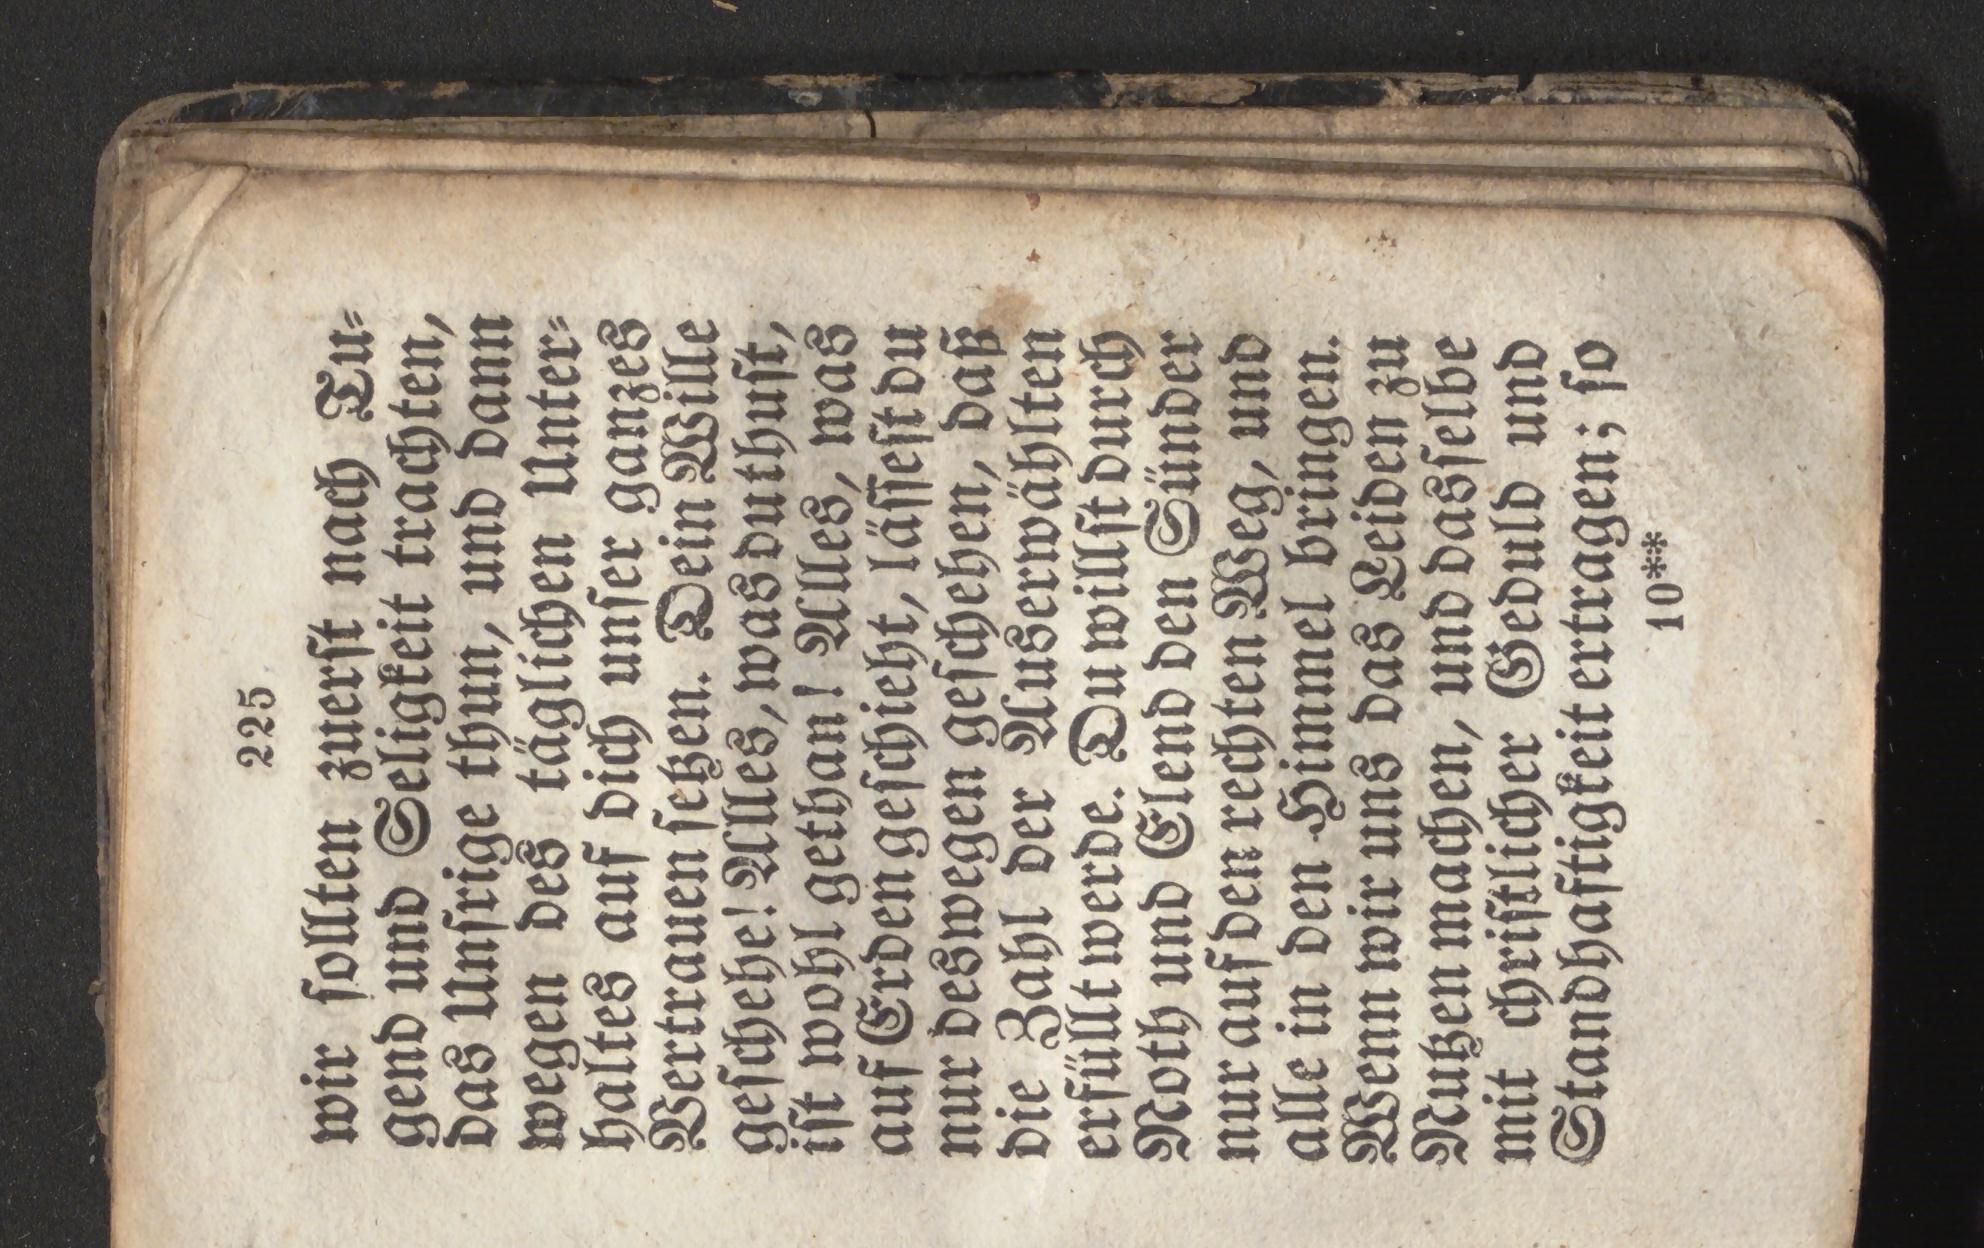 225
wir sollten zuerst nach Tu⸗
gend und Seligkeit trachten,
das Unsrige thun, und dann
wegen des täglichen Unter⸗
haltes auf dich unser ganzes
Vertrauen setzen. Dein Wille
geschehe! Alles, was du thust,
ist wohl gethan! Alles, was
auf Erden geschieht, lässest du
nur deswegen geschehen, daß
die Zahl der Auserwählten
erfüllt werde. Du willst durch
Noth und Elend den Sünder
nur auf den rechten Weg, und
alle in den Himmel bringen.
Wenn wir uns das Leiden zu
Nutzen machen, und dasselbe
mit christlicher Geduld und
Standhaftigkeit ertragen; so
10**